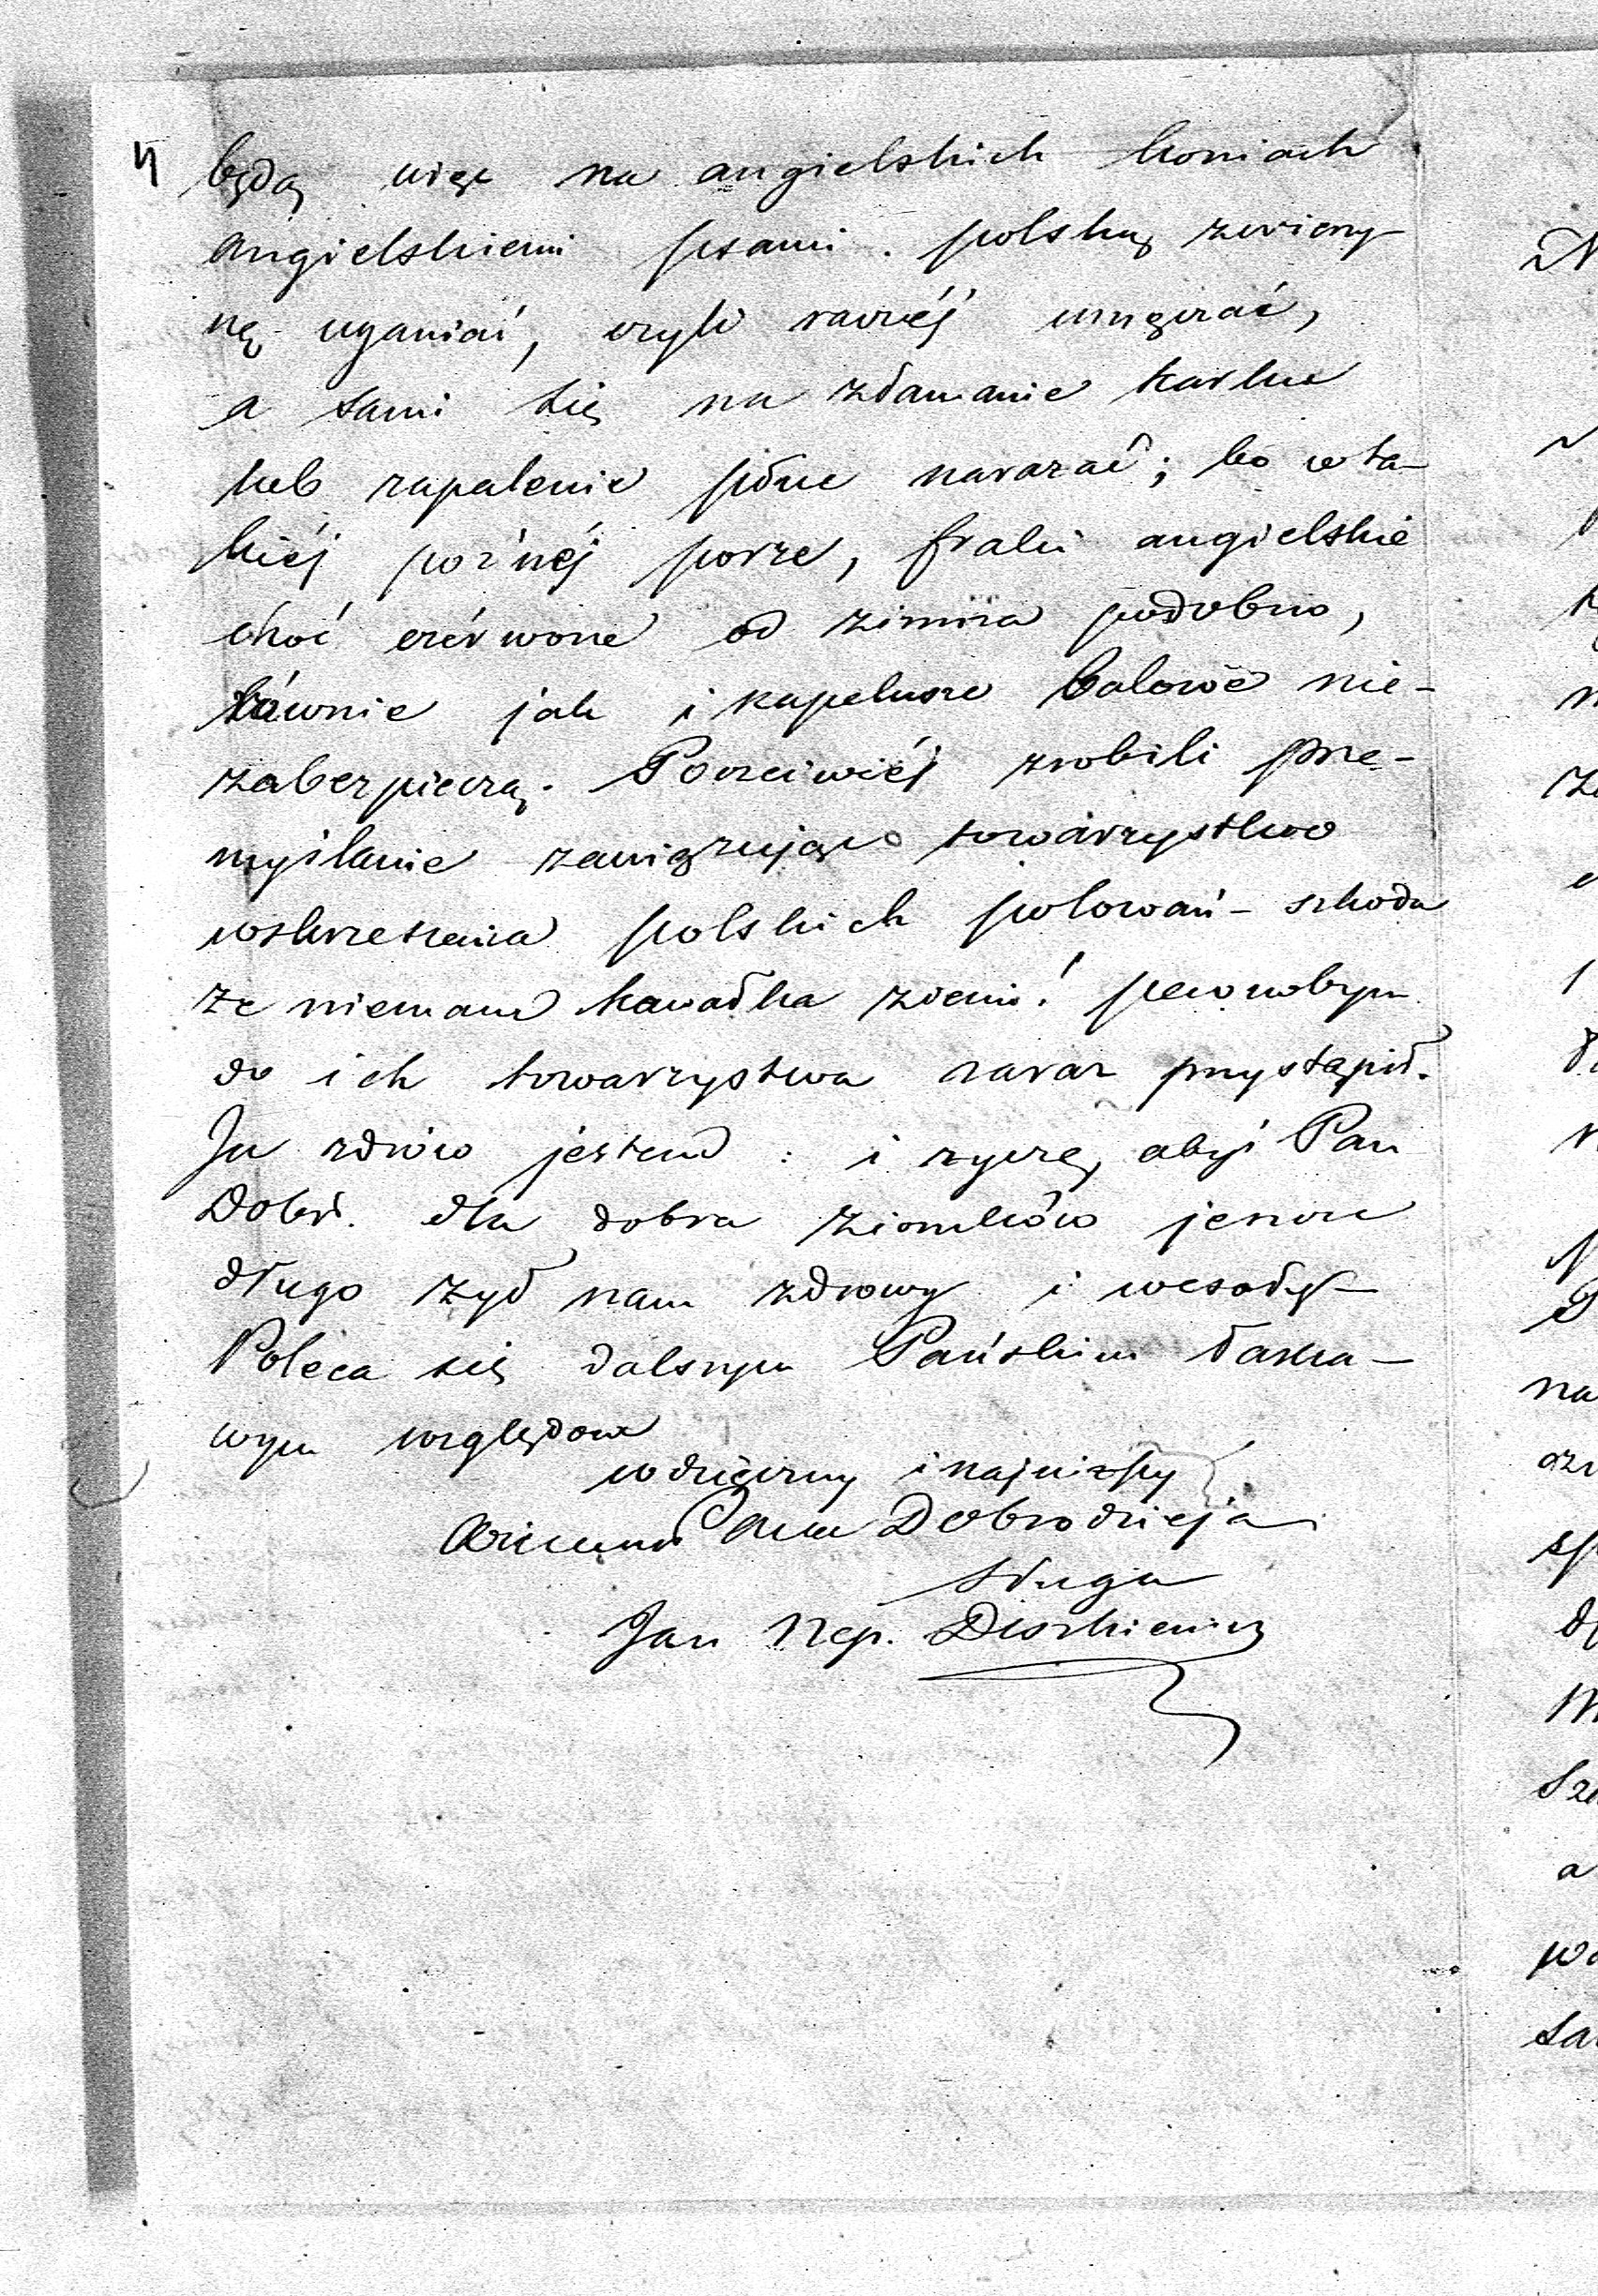 4
będą więc na angielskich koniach
angielskiemi psami polską zwierzy-
nę uganiać, czyli raczéj umęczać,
a sami się na złamanie karku
lub zapalenie płuc narażać; bo w ta-
kiéj poźnéj porze, fraki angielskie
choć czérwone od zimna podobno,
równie jak i kapelusze balowe nie-
zabezpieczą. Poczciwiéj zrobili prze-
myślanie zawiązując towarzystwo
wskrzeszenia polskich polowań – szkoda
że niemam kawałka ziemi! pewnobym
do ich towarzystwa zaraz przystąpił.
Ja zdrów jestem : i życzę, abyś Pan
Dobr. dla dobra ziomków jeszcze
długo żył nam zdrowy i wesoły –
Poleca się dalszym Pańskim łaska-
wym względom
wdzięczny i najniższy
Pana Dobrodzieja
sługa
Jan Nep.